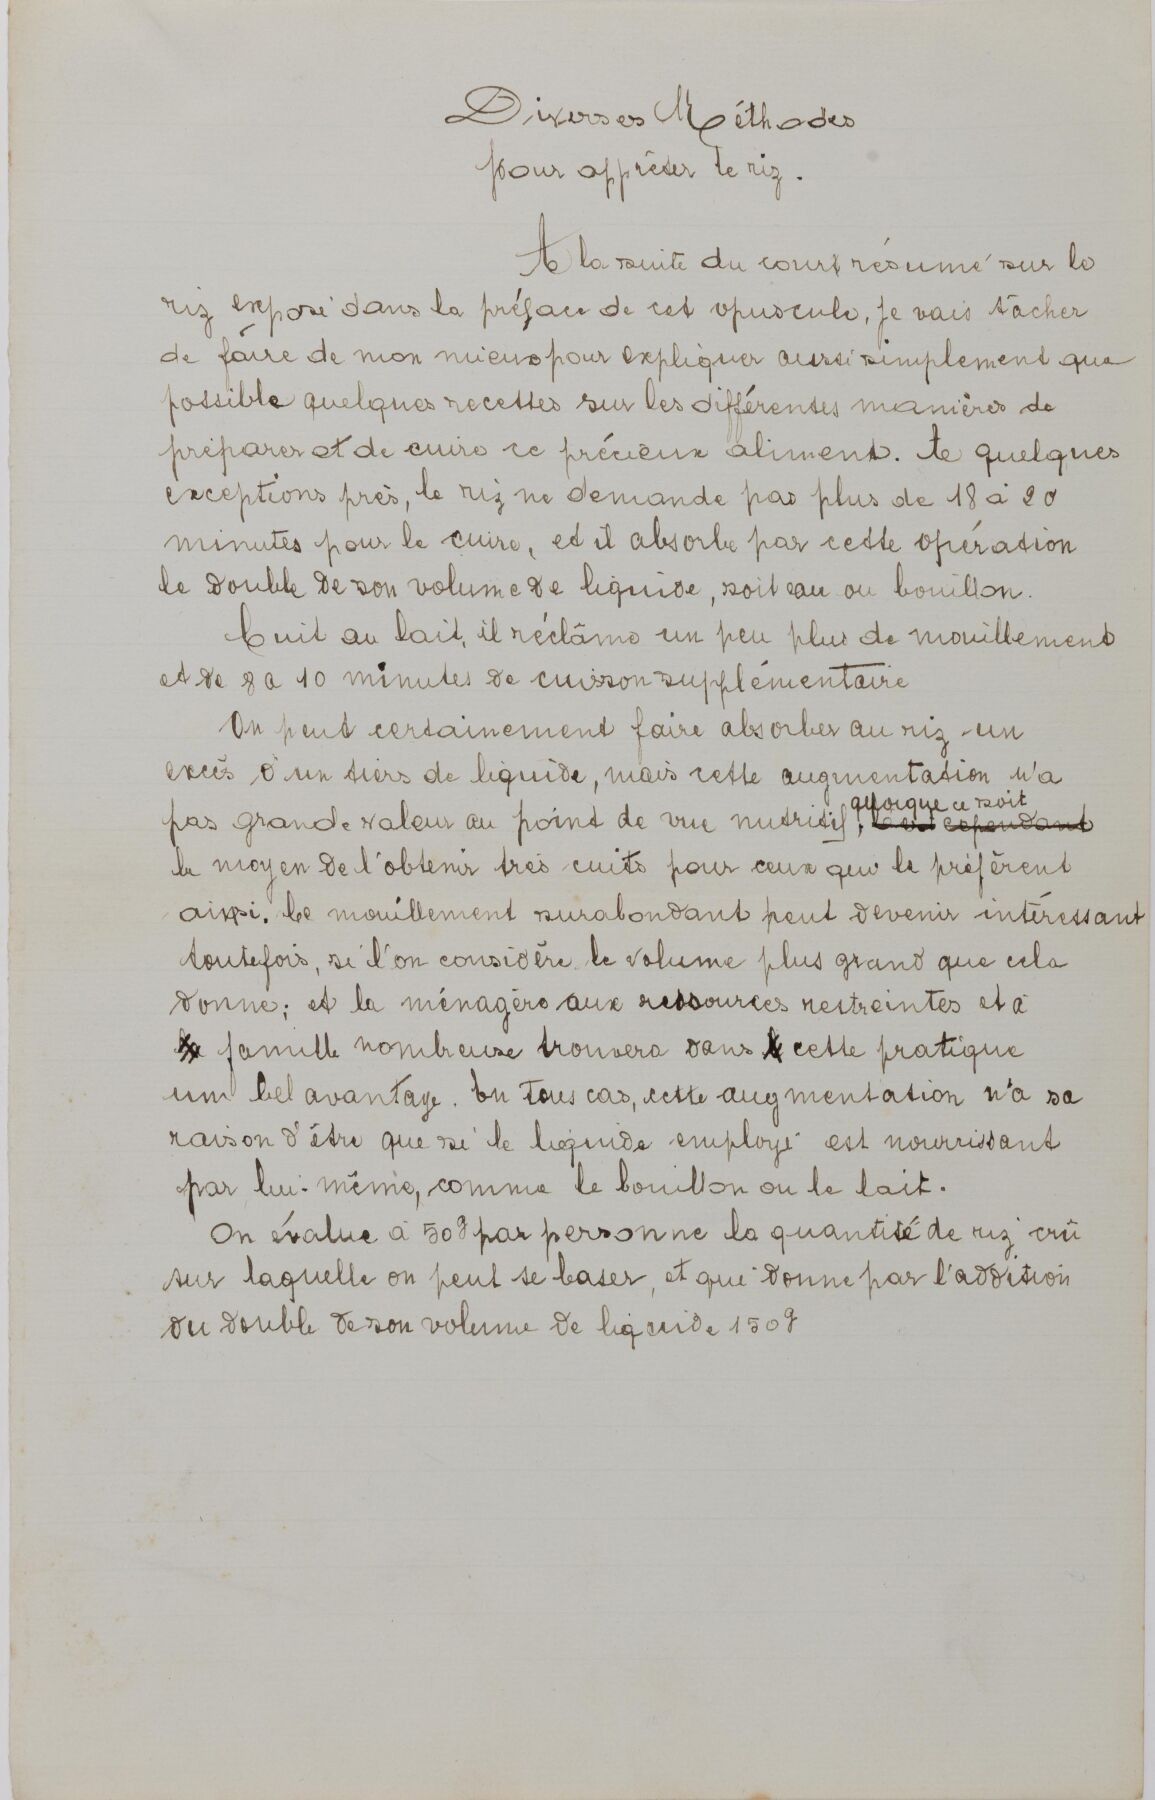 Diverses Méthodes
pour apprêter le riz.
A la suite du court résumé sur le
riz exposé dans la préface de cet opuscule, je vais tâcher
de faire de mon mieux pour expliquer aussi simplement que
possible quelques recettes sur les différentes manières de
préparer et de cuire ce précieux aliment. A quelques
exceptions près, le riz ne demande pas plus de 18 à 20
minutes pour le cuire, et il absorbe par cette opération
le double de son volume de liquide, soit eau ou bouillon.
Cuit au lait, il réclâme un peu plus de mouillement
et de 8 a 10 minutes de cuisson supplémentaire
On peut certainement faire absorber au riz un
excès d'un tiers de liquide, mais cette augmentation n'a
quoique ce soit
pas grande valeur au point de vue nutritif, cependant
le moyen de l'obtenir très cuits pour ceux qui le préfèrent
ainsi. Ce mouillement surabondant peut devenir intéressant
toutefois, si l'on considère le volume plus grand que cela
donne; et la ménagère aux ressources restreintes et à
famille nombreuse trouvera dans cette pratique
un bel avantage. En tous cas, cette augmentation n'a sa
raison d'être que si le liquide employé est nourrissant
par lui-même, comme le bouillon ou le lait.
On évalue à 50g par personne la quantité de riz crû
sur laquelle on peut se baser, et qui donne par l'addition
du double de son volume de liquide 150g